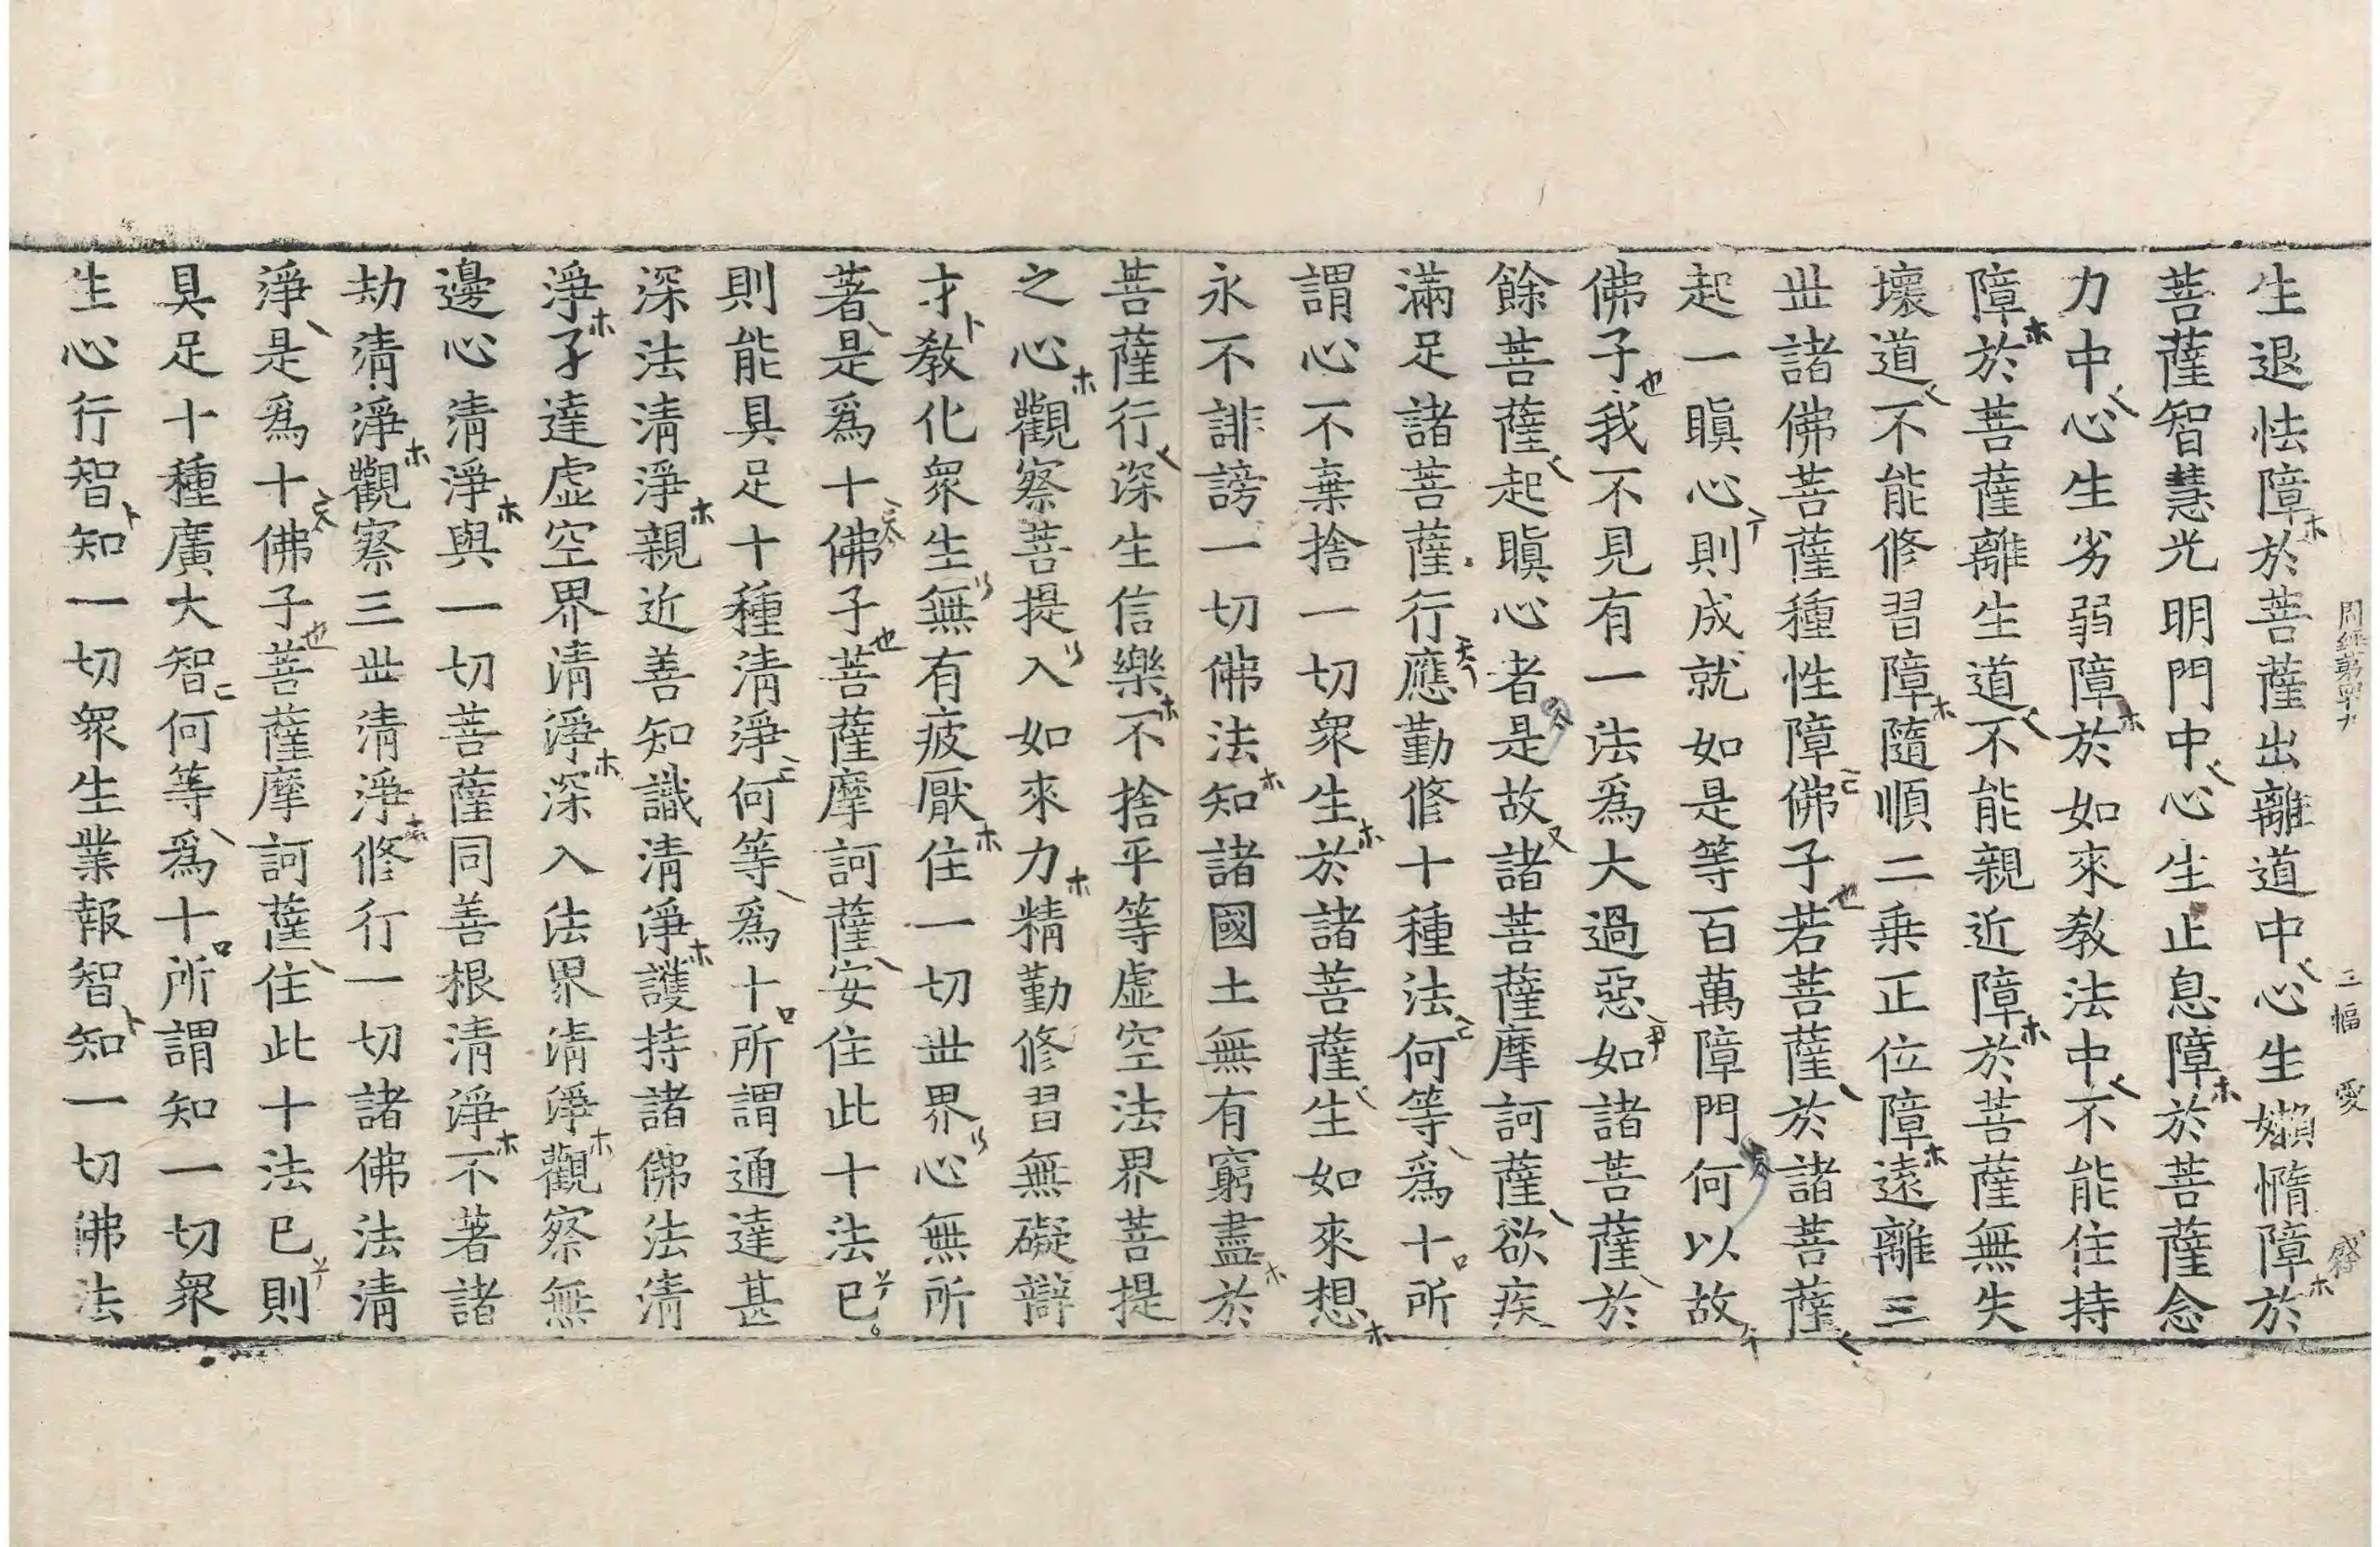 周經第四十九 三幅 愛
生退怯障於菩薩出離道中心生懶惰障於
菩薩智慧光明門中心生止息障於菩薩念
力中心生劣弱障於如來教法中不能住持
障於菩薩離生道不能親近障於菩薩無失
壞道不能修習障隨順二乗正位障遠離三
世諸佛菩薩種性障佛子若菩薩於諸菩薩
起一瞋心則成就如是等百萬障門何以故
佛子我不見有一法爲大過惡如諸菩薩於
餘菩薩起瞋心者是故諸菩薩摩訶薩欲疾
滿足諸菩薩行應勤修十種法何等爲十所
謂心不棄捨一切衆生於諸菩薩生如來想
永不誹謗一切佛法知諸國土無有窮盡於
菩薩行深生信樂不捨平等虛空法界菩提
之心觀察菩提入如來力精勤修習無礙辯
才教化衆生無有疲厭住一切世界心無所
著是爲十佛子菩薩摩訶薩安住此十法已
則能具足十種清淨何等爲十所謂通達甚
深法清淨親近善知識清淨護持諸佛法清
淨了達虛空界清淨深入法界清淨觀察無
邊心清淨與一切菩薩同善根清淨不著諸
劫清淨觀察三世清淨修行一切諸佛法清
淨是爲十佛子菩薩摩訶薩住此十法已則
具足十種廣大智何等爲十所謂知一切衆
生心行智知一切衆生業報智知一切佛法